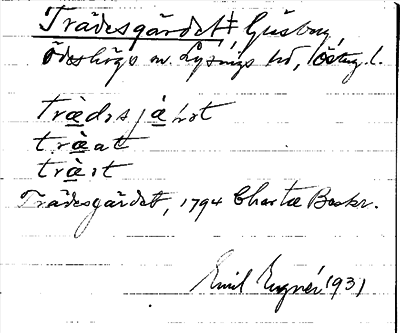 Trädesgärdet ‡, Gisbom,
Ödeshögs sn. Lysings hd, Östg. l.
trä̀dəsjä̀ḷət
trä̀at
trä̀ət
Trädesgärdet, 1794 Chartæ Beskr.
Emil Eugnér 1931